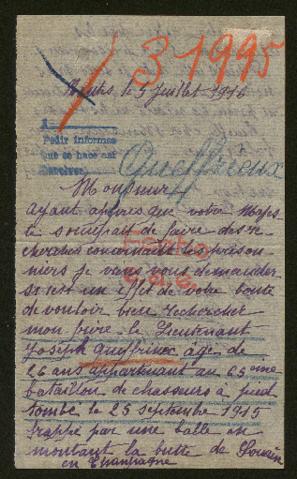 3 1995
le 5 Juillet 1916
Pedir informes
que se hace así
Queffrieux
Monsieur
ayant appris que votre Majes
té s'occupait de faire des re-
cherches concernant les prison
niers je viens vous demander
si c'est un effet de votre bonté
de vouloir bien rechercher
mon frère le Lieutenant
Joseph âgé de
26 ans appartenant au 65 eme
bataillon de chasseurs à pied
tombé le 25 Septembre 1915
frappé par une balle en
montant la butte de Souain
en Champagne